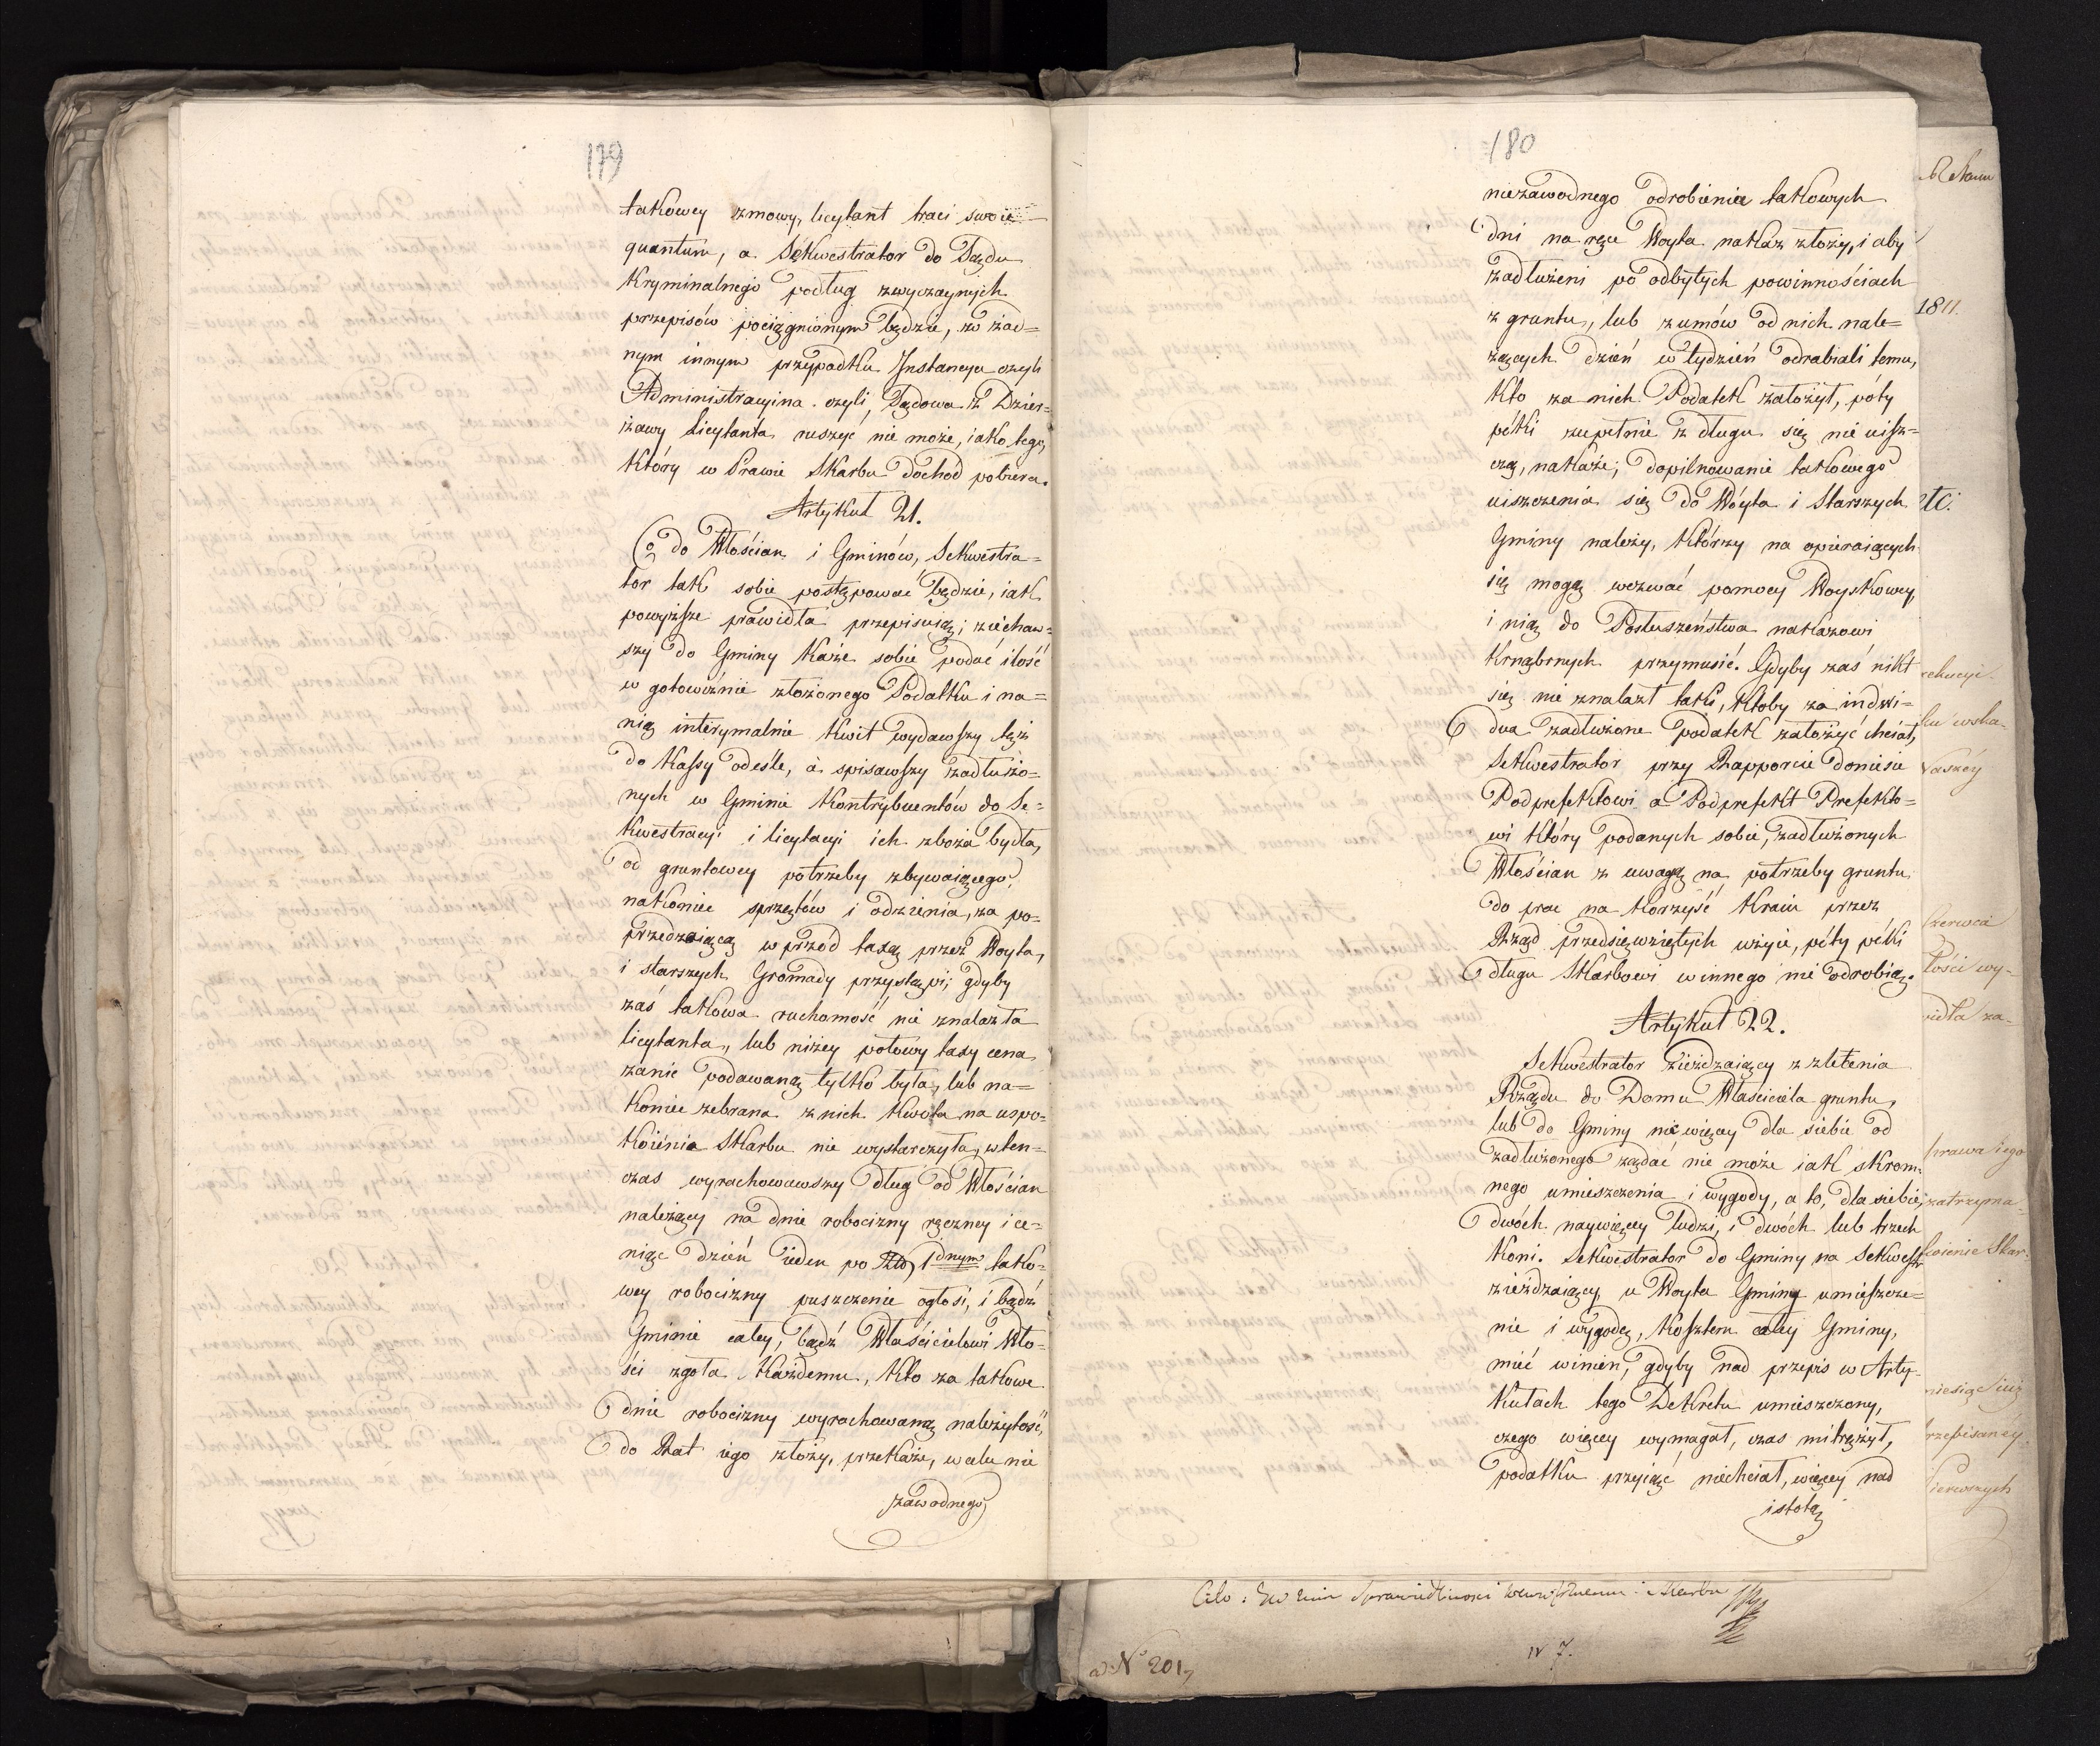 179
takowey zmowy, licytant traci swoie
quantum, a Sekwestrator do Sądu
Kryminalnego podług zwyczaynych
przepisów pociągnionym będzie, w żad=
nym innym przypadku Instancya czyli
Administracyina czyli, Sądowa z Dzier=
żawy licytanta ruszyć nie może, iako tego,
który w Prawie Skarbu dochód pobiera.
Artykuł 21.
Co do Włościan i Gminów, Sekwestra=
tor tak sobie postępować będzie, iak
powyższe prawidła przepisuią; ziechaw=
szy do Gminy każe sobie podać ilość
w gotowiźnie złożonego Podatku i na=
nią interymalnie kwit wydawszy tęż
do Kassy odeśle, a spisawszy zadłużo=
nych w Gminie kontrybuentów do Se=
kwestracyi i licytacyi ich zboża bydła,
od gruntowey potrzeby zbywaiącego,
nakoniec sprzętów i odzienia, za po=
przedzaiącą wprzód taxą przez Woyta,
i starszych Gromady przystąpi; gdyby
zaś takowa ruchomość nie znalazła
licytanta, lub niżey połowy taxy cena
zanie podawaną tylko była, lub na=
koniec zebrana z nich kwota na uspo=
koienia Skarbu nie wystarczyła, wten=
czas wyrachowawszy dług od Włościan
należący na dnie robocizny ręczney i ce=
niąc dzień ieden po Złd 1dnym tako=
wey robocizny puszczenie ogłosi, i bądź
Gminie całey, bądź Właścicielowi Wło=
ści zgoła każdemu, kto za takowe
dnie robocizny wyrachowaną należytość,
do Rat iego złoży, przekaże, w celu nie
zawodnego
180
niezawodnego odrobienia takowych
dni na ręce Woyta nakaz złoży, i aby
zadłużeni po odbytych powinnościach
z gruntu, lub z umów od nich nale=
żących dzień w tydzień odrabiali temu,
kto za nich Podatek założył, póty
póki zupełnie z długu się nie uisz=
czą, nakaże; dopilnowanie takowego
uiszczenia się do Wóyta i Starszych
Gminy należy, którzy na opieraiących
się mogą wezwać pomocy Woyskowey,
i nią do Posłuszeństwa nakazowi
krnąbrnych przymusić. Gdyby zaś nikt
się nie znalazł taki, któby za indwi=
dua zadłużone podatek założyć chciał,
Sekwestrator przy Rapporcie doniesie
Podprefektowi a Podprefekt Prefekto=
wi który podanych sobie, zadłużonych
Włościan z uwagą na potrzeby gruntu
do prac na korzyść Kraiu przez
Rząd przedsięwziętych użyie, póty póki
długu Skarbowi winnego nie odrobią.
Artykuł 22.
Sekwestrator zieżdzaiący z zlecenia
Rządu do Domu Właściciela gruntu,
lub do Gminy nie więcey dla siebie od
zadłużonego żądać nie może iak skrom=
nego umieszczenia i wygody, a to, dla siebie,
dwóch naywięcey ludzi, i dwóch lub trzech
koni. Sekwestrator do Gminy na Sekwestr
zieżdzaiący, u Woyta Gminy umieszcze=
nie i wygodę, kosztem całey Gminy,
mieć winien, gdyby nad przepis w Arty=
kułach tego Dekretu umieszczony,
czego więcey wymagał, czas mitrężył,
podatku przyiąć niechciał, więcey nad
istotę
1811.
ekucyi.
ku wska=
Waszéy
Czerwca
łości wy=
widła za=
prawa iego
zatrzyma=
koienie Skar=
miesiąc iuż
rzepisanéy
Pierwszych
N 7.
ad No 201,